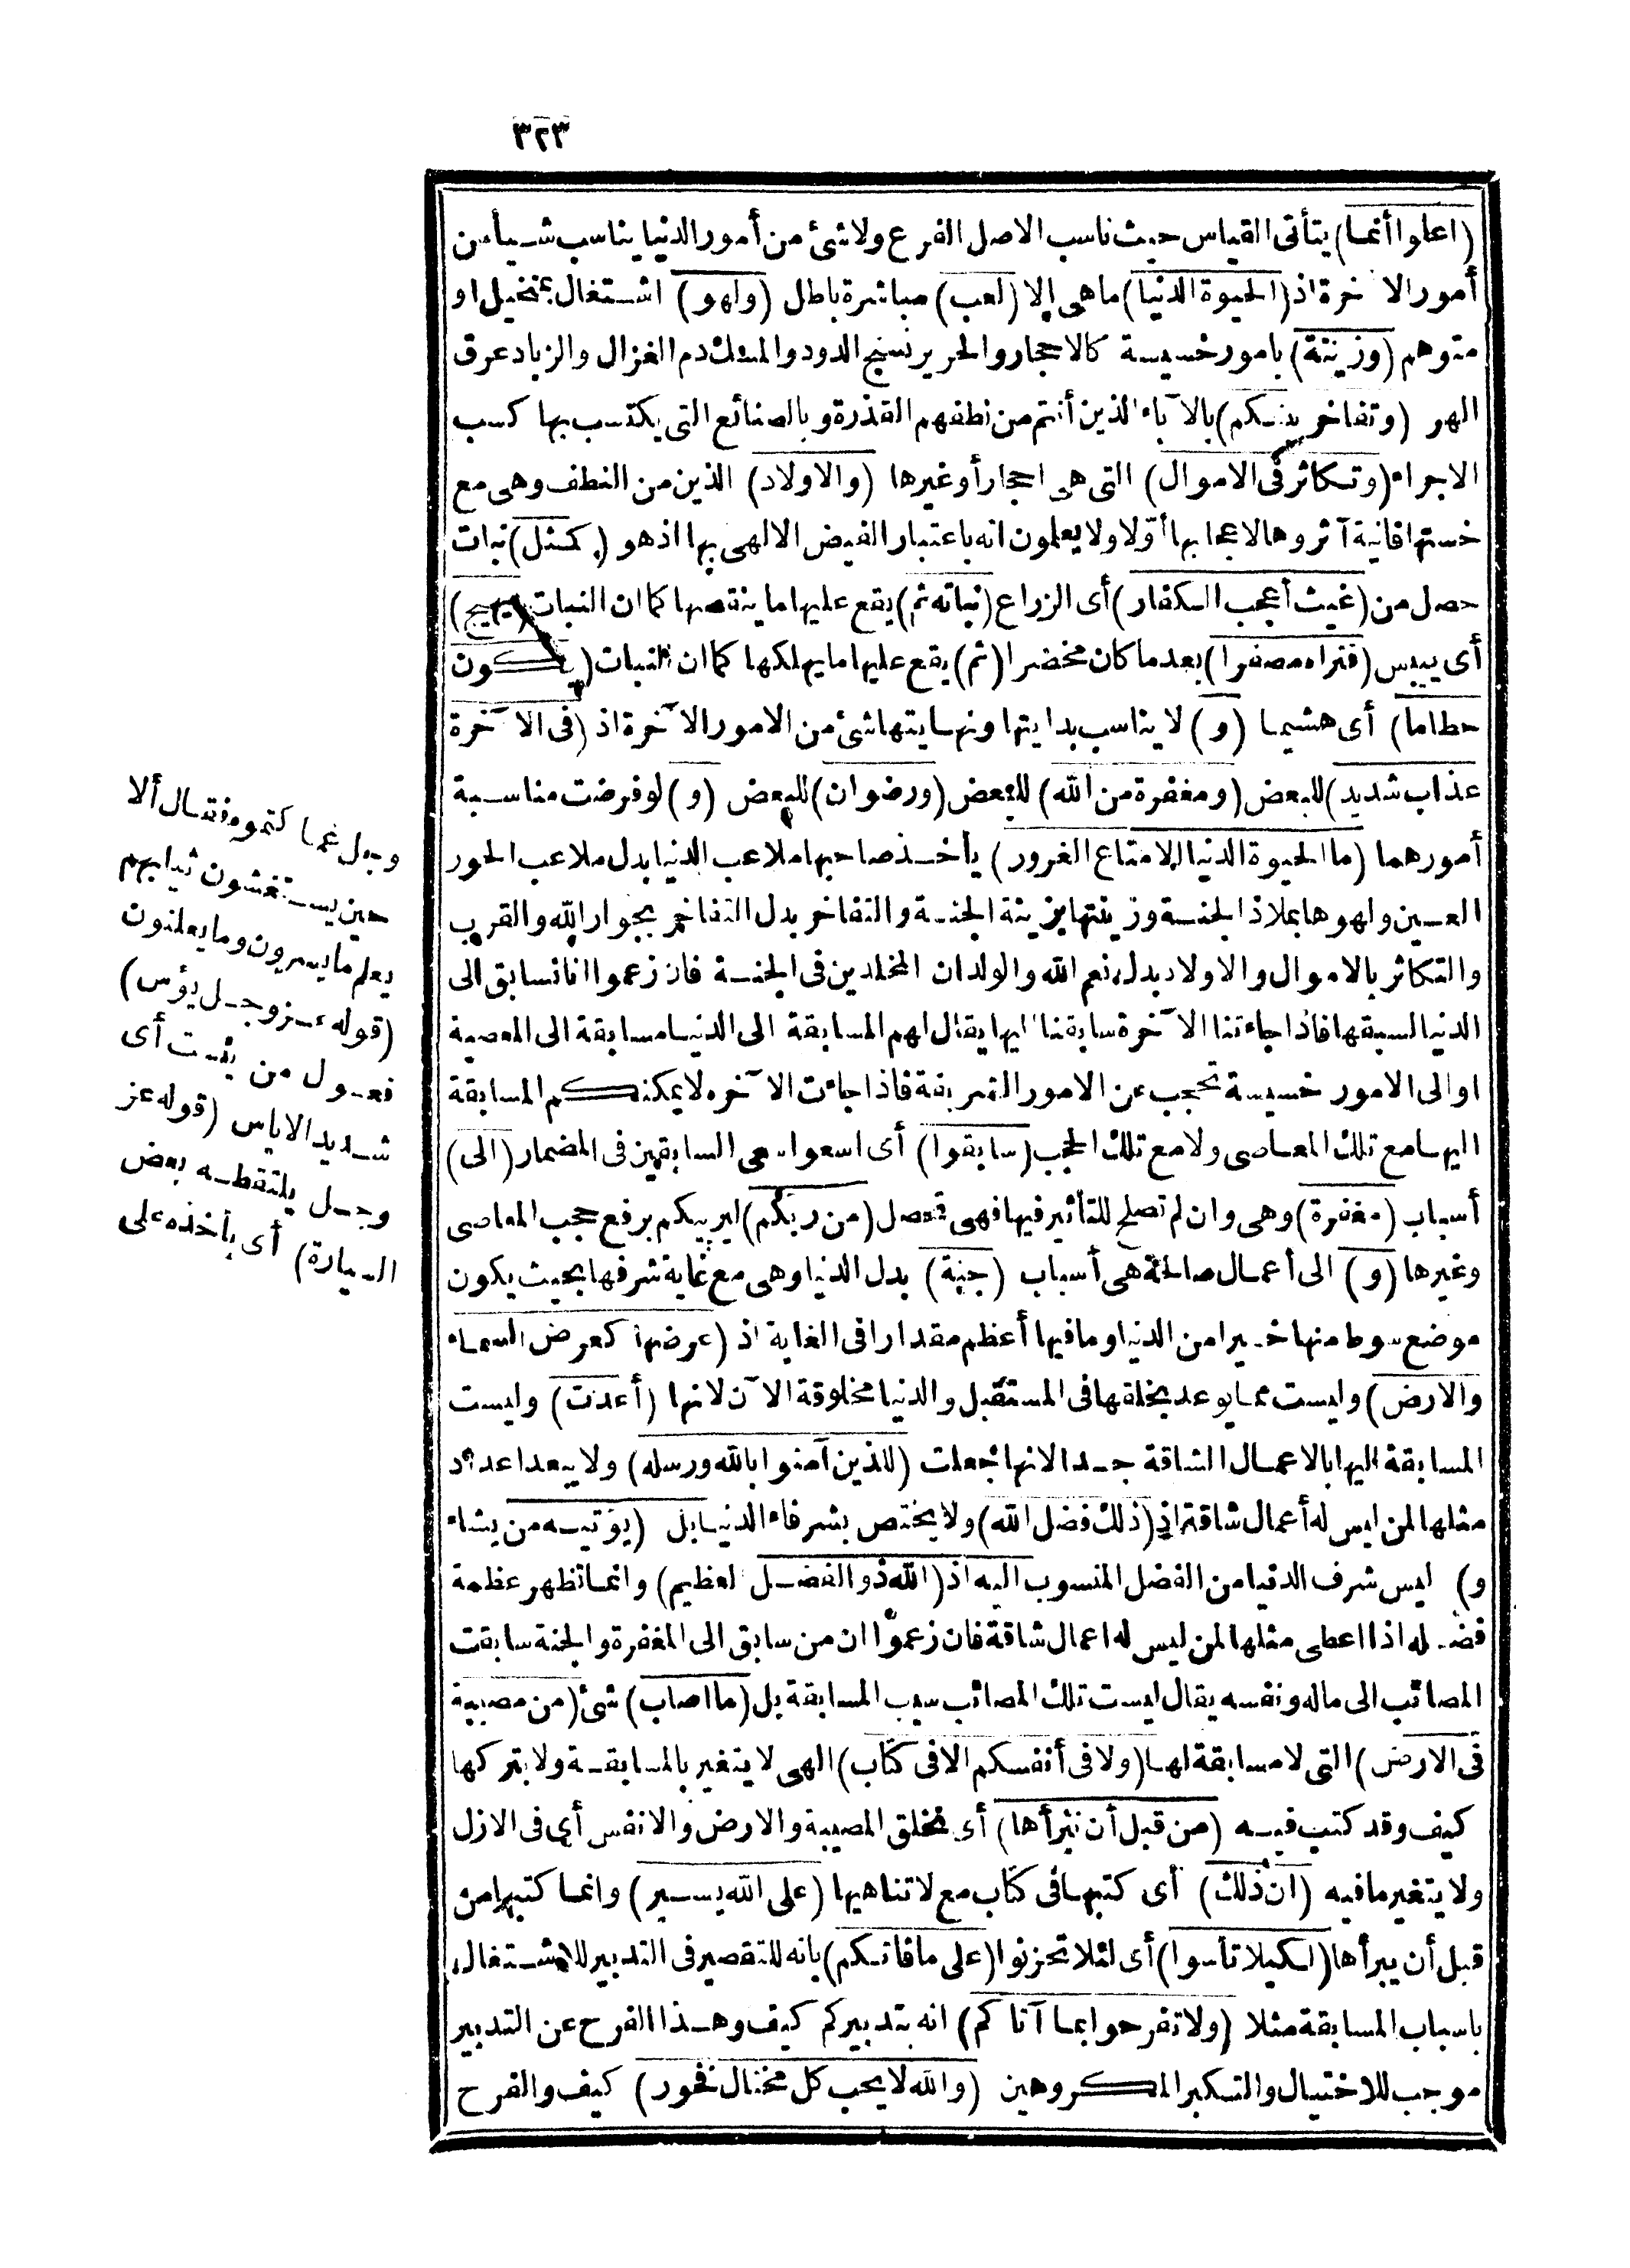 ٣٢٣
(اعلوا أنما) يتأتى القياس حيث ناسب الاصل الفرع ولا شئ من أمور الدنيا يناسب شيأ من
أمور الآخرة اذ (الحيوة الدنيا) ما هى إلا (لعب) مباشرة باطل (ولهو) اشتغال بمتخيل او
متوهم (وزينة) بامور خسيسة كالاحجار والحرير نسج الدود والمسك دم الغزال والزباد عرق
الهر (وتفاخر بينكم) بالآباء الذين أنتم من نطفهم القذرة وبالصنائع التى يكتسب بها كسب
الاجراء (وتكاثر فى الاموال) التى هى احجار أو غيرها (والاولاد) الذين من النطف وهى مع
خستها فانية آثروها لاعجابها أولا ولا يعلمون انه باعتبار الفيض الالهى بها اذ هو (كمثل) نبات
حصل من (غيث أعجب الكفار) أى الزراع (نباته ثم) يقع عليها ما ينقصها كما ان النبات (يهيج)
أى ييبس (فتراه مصفرا) بعد ما كان مخضرا (ثم) يقع عليها ما يهلكها كما ان النبات (يكون
حطاما) أى هشيما (و) لا يناسب بدايتها ونهايتها شئ من الامور الآخرة اذ (فى الآخرة
عذاب شديد) للبعض (ومغفرة من الله) للبعض (ورضوان) للبعض (و) لو فرضت مناسبة
أمورهما (ما الحيوة الدنيا الا متاع الغرور) يأخذ صاحبها ملاعب الدنيا بدل ملاعب الحور
العين ولهوها بملاذ الجنة وزينتها بزينة الجنة والتفاخر بدل التفاخر بجوار الله والقرب
والتكاثر بالاموال والاولاد بدل نعم الله والولدان المخلدين فى الجنة فان زعموا انا نسابق الى
الدنيا لسبقها فاذا جاءتنا الآخرة سابقنا اليها يقال لهم المسابقة الى الدنيا مسابقة الى المعصية
او الى الامور خسيسة تحجب عن الامور الشريفة فاذا جاءت الآخره لا يمكنكم المسابقة
اليها مع تلك المعاصى ولا مع تلك الحجب (سابقوا) أى اسعوا سعى السابقين فى المضمار (الى)
أسباب (مغفرة) وهى وان لم تصلح للتأثير فيها فهى تحصل (من ربكم) ليربيكم برفع حجب المعاصى
وغيرها (و) الى أعمال صالحة هى أسباب (جنة) بدل الدنيا وهى مع غاية شرفها بحيث يكون
موضع سوط منها خيرا من الدنيا وما فيها أعظم مقدارا فى الغاية اذ (عرضها كعرض السماء
والارض) وليست مما يوعد بخلقها فى المستقبل والدنيا مخلوقة الآن لانها (أعدت) وليست
المسابقة اليها بالاعمال الشاقة جدا لانها جعلت (للذين آمنوا بالله ورسله) ولا يبعد اعداد
مثلها لمن ليس له أعمال شاقة اذ (ذلك فضل الله) ولا يختص بشرفاء الدنيا بل (يؤتيه من يشاء
و) ليس شرف الدنيا من الفضل المنسوب اليه اذ (الله ذو الفضل العظيم) وانما تظهر عظمة
فضله اذا اعطى مثلها لمن ليس له اعمال شاقة فان زعموا ان من سابق الى المغفرة والجنة سابقت
المصائب الى ماله ونفسه يقال ليست تلك المصائب سبب المسابقة بل (ما اصاب) شئ (من مصيبة
فى الارض) التى لا مسابقة لها (ولا فى أنفسكم الا فى كتاب) الهى لا يتغير بالمسابقة ولا بتركها
كيف وقد كتب فيه (من قبل أن نبرأها) أى نخلق المصيبة والارض والانفس أى فى الازل
ولا يتغير ما فيه (ان ذلك) أى كتبها فى كتاب مع لا تناهيها (على الله يسير) وانما كتبها من
قبل أن يبرأها (لكيلا تأسوا) أى لئلا تحزنوا (على ما فاتكم) بانه للتقصير فى التدبير للاشتغال
باسباب المسابقة مثلا (ولا تفرحوا بما آتاكم) انه بتدبيركم كيف وهذا الفرح عن التدبير
موجب للاختيال والتكبر المكروهين (والله لا يحب كل مختال فخور) كيف والفرح
وجل غما كتموه فقال ألا
حين يستغشون ثيابهم
يعلم ما يسرون وما يعلنون
(قوله عز وجل يؤس)
فعول من يئست أى
شديد الاياس (قوله عز
وجل يلتقطه بعض
السيارة) أى يأخذه على